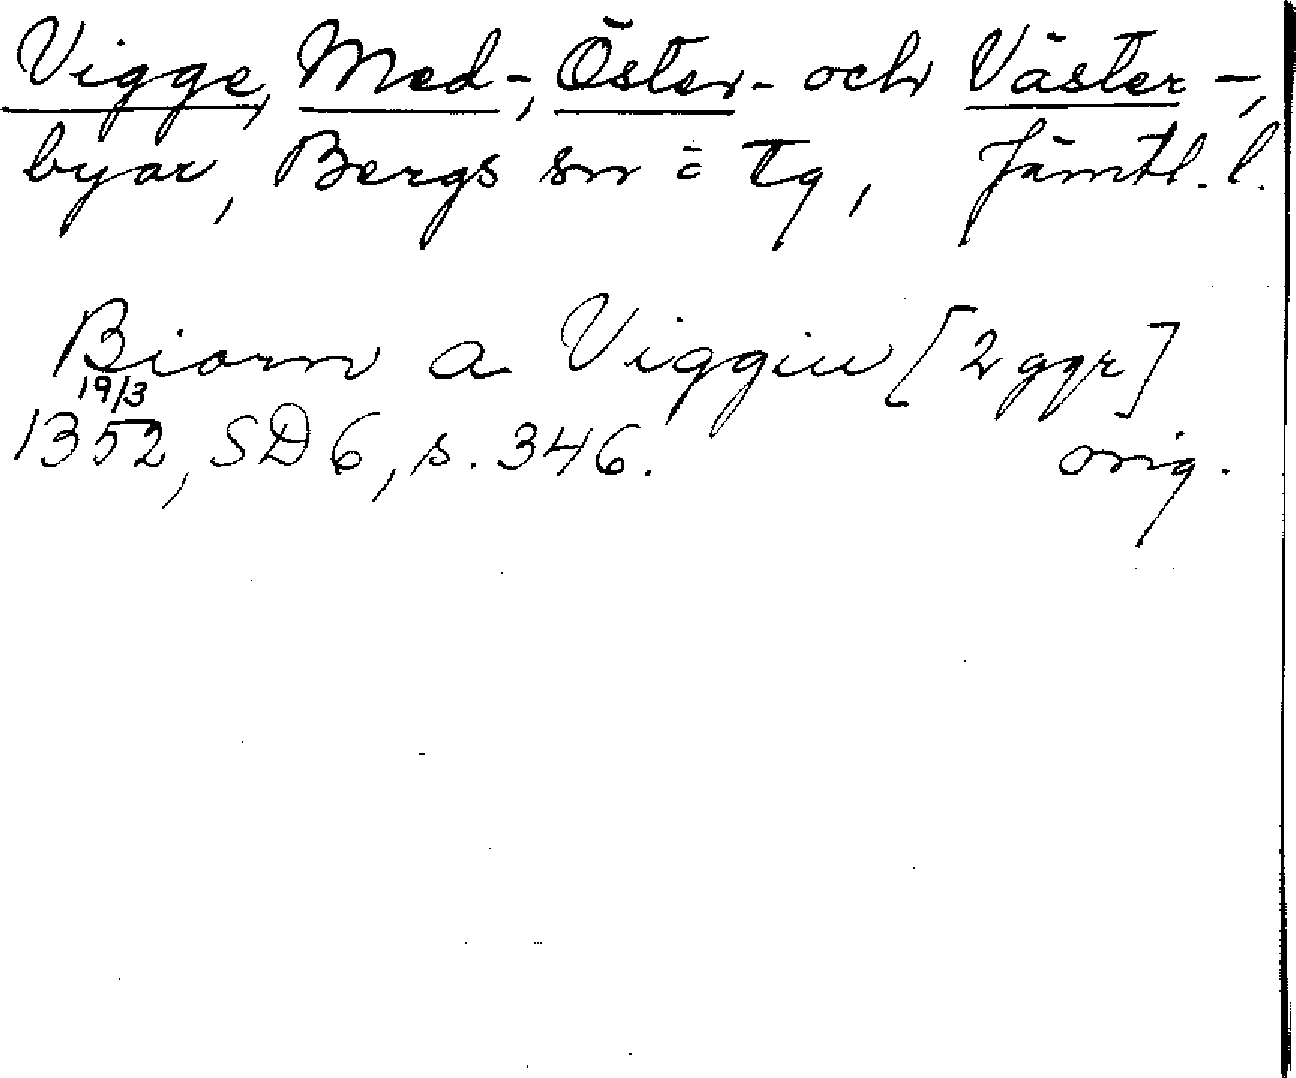 Vigge, Med-, Öster- och Väster-,
byar, Bergs sn = tg, Jämtl. l.
Biorn a Viggiu [2 ggr]
19/3
1352, SD 6, s. 346. orig.